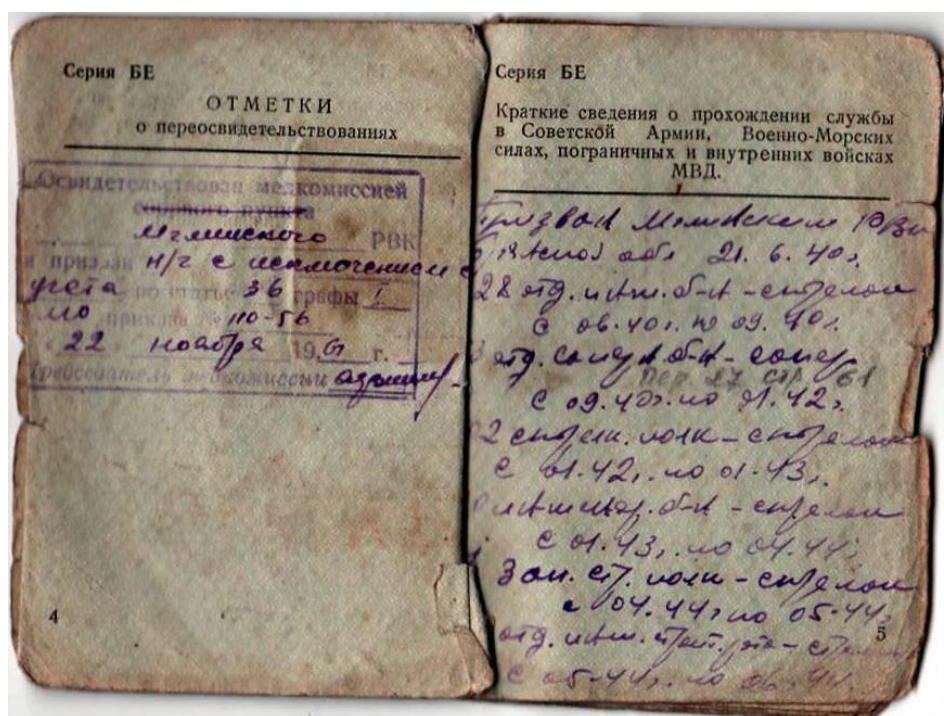 Серия БЕ
ОТМЕТКИ
о переосвидетельствованиях
Освидетельствован медкомиссией
сборного пункта
Мглинского РВК
и признан н/г с исключением с
учета по статье 36 графы I
МО приказ № 110-56
"22" ноября 1961 г.
Председатель медкомиссии
4
Серия БЕ
Краткие сведения о прохождении службы
в Советской Армии, Военно-Морских
силах, пограничных и внутренних войсках
МВД.
Призван Мглинским РВК
обл 21. 6. 40г.
28 отд. б-н - стрелок
с 06.40г. по 09.40г.
отд. б-н - сапер
Пер. 27 стр 61
с 09.40г. по 01.42г.
2 стрелк. полк - стрелок
с 01.42г. по 01.43г.
б-н - стрелок
с 01.43г. по 04.44г.
Зап. ст. полк - стрелок
с 04.44г по 05.44г.
отд.
с 05.44г. по 06.44.
5